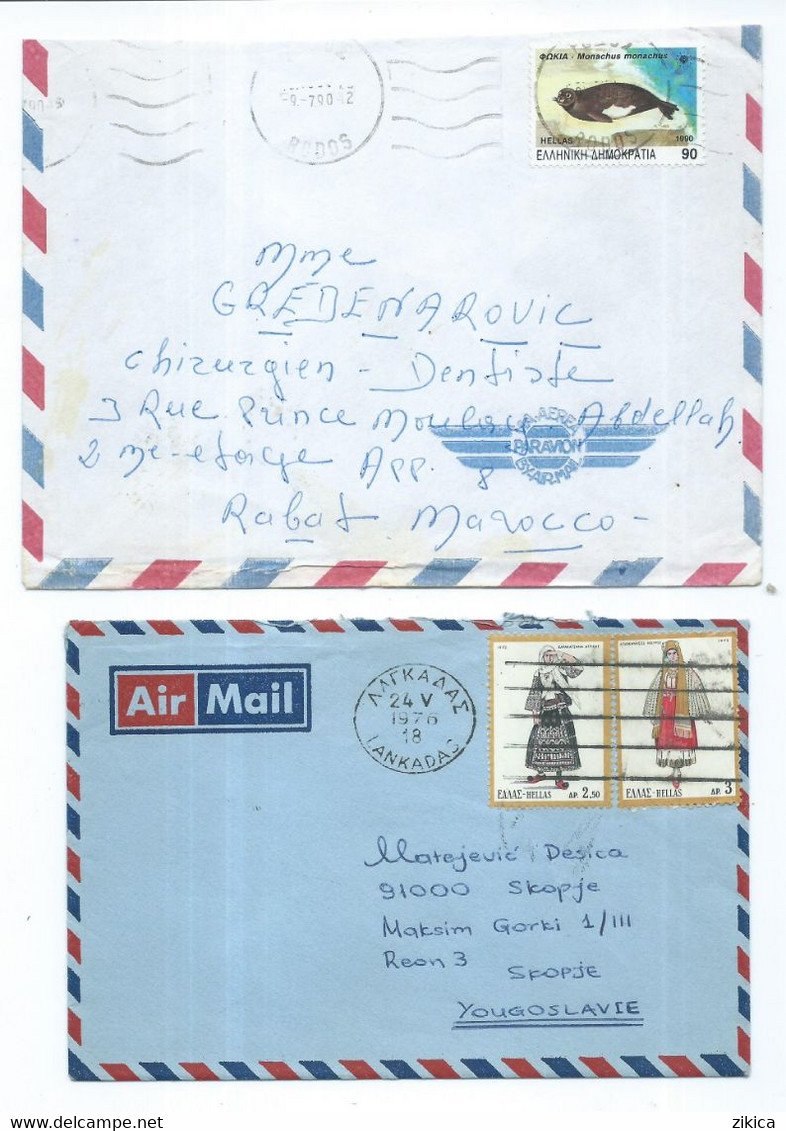 ΦΩΚΙΑ - Monachus monachus
HELLAS 1990
ΕΛΛΗΝΙΚΗ ΔΗΜΟΚΡΑΤΙΑ 90
-9.-7.90-12
RODOS
RODOS
Mme
GREBENAROVIC
Chirurgien - Dentiste
3 Rue Prince Moulay Abdellah
2 me-etage APP. 8
Rabat Marocco-
PAR AVION
BY AIR MAIL
Air Mail
ΛΑΓΚΑΔΑΣ
24 V
1976
18
LANKADAS
ΕΛΛΑΣ-HELLAS ΔΡ. 2,50
ΕΛΛΑΣ-HELLAS ΔΡ. 3
Matejević Desica
91000 Skopje
Maksim Gorki 1/III
Reon 3 Skopje
YOUGOSLAVIE
zikica